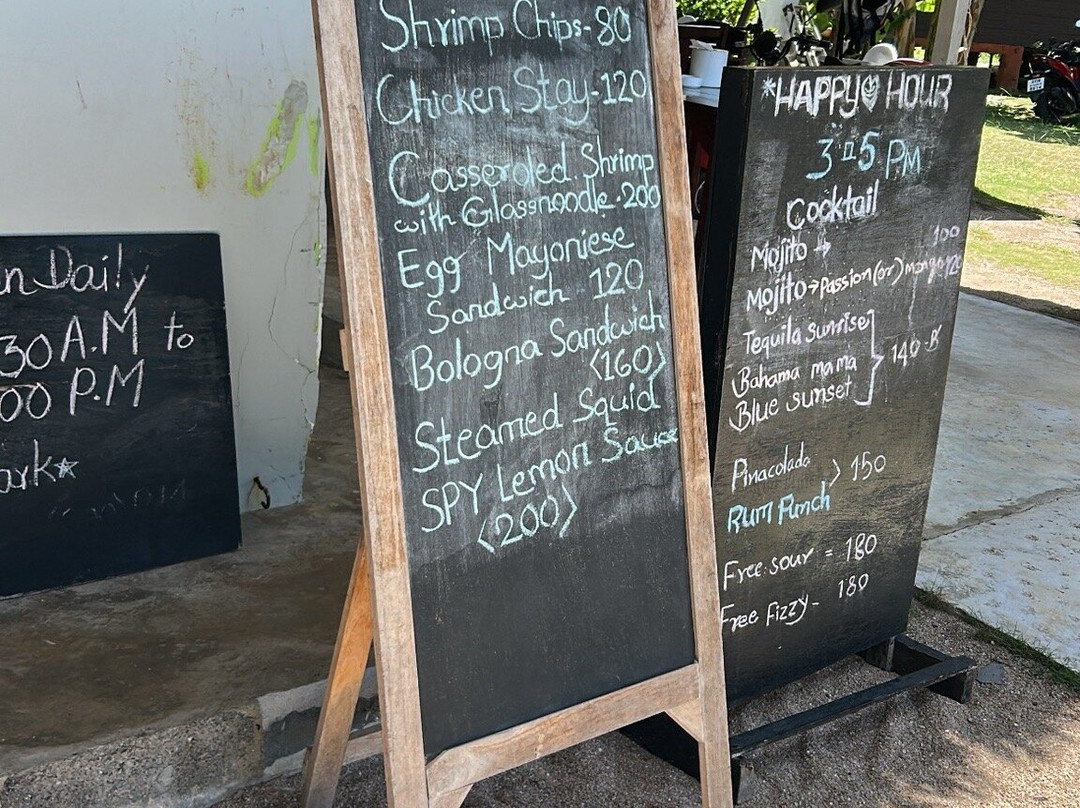 n Daily
30 A.M to
00 P.M
ark☆
Shrimp Chips-80
Chicken Stay-120
Casseroled Shrimp
with Glassnoodle.200
Egg Mayoniese
Sandwich 120
Bologna Sandwich
<160>
Steamed Squid
SPY Lemon Sauce
<200>
*HAPPY♡HOUR
3 to 5 PM
Cocktail
Mojito → 100
Mojito→Passion(or)mango 120
Tequila sunrise
Bahama mama } 140 ฿
Blue sunset
Pinacolada
> 150
Rum Punch
Free sour = 180
Free Fizzy - 180